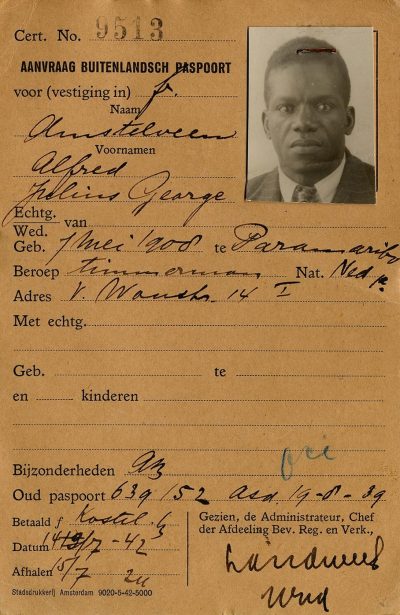 Cert. No. 9513
AANVRAAG BUITENLANDSCH PASPOORT
voor (vestiging in)
Naam
Amstelveen
Voornamen
Alfred
Julius George
Echtg.
Wed. van
Geb. 7 Mei 1908 te Paramaribo
Beroep timmerman Nat. Ned
Adres V. Woustr. 14 I
Met echtg.
Geb. te
en kinderen
Bijzonderheden
Oud paspoort 639/52 Asd 19-8-39
Betaald f Kostel.
Datum /7-42
Afhalen 15/7
Gezien, de Administrateur, Chef
der Afdeeling Bev. Reg. en Verk.,
Stadsdrukkerij Amsterdam 9020-5-42-5000